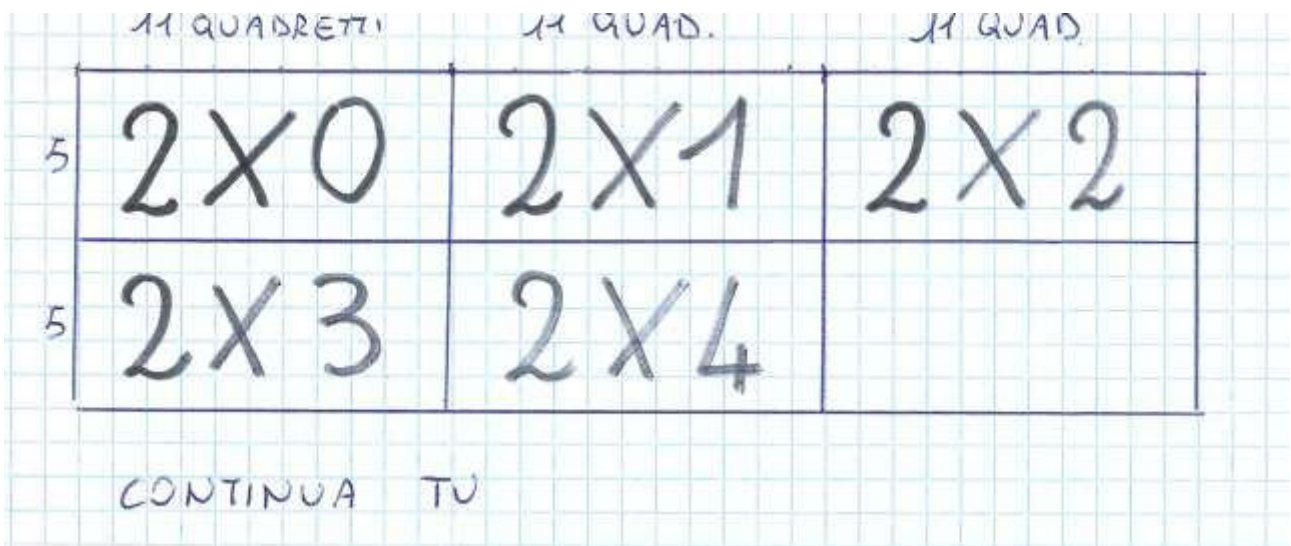 11 QUADRETTI 11 QUAD. 11 QUAD
5 2X0 2X1 2X2
5 2X3 2X4
CONTINUA TU